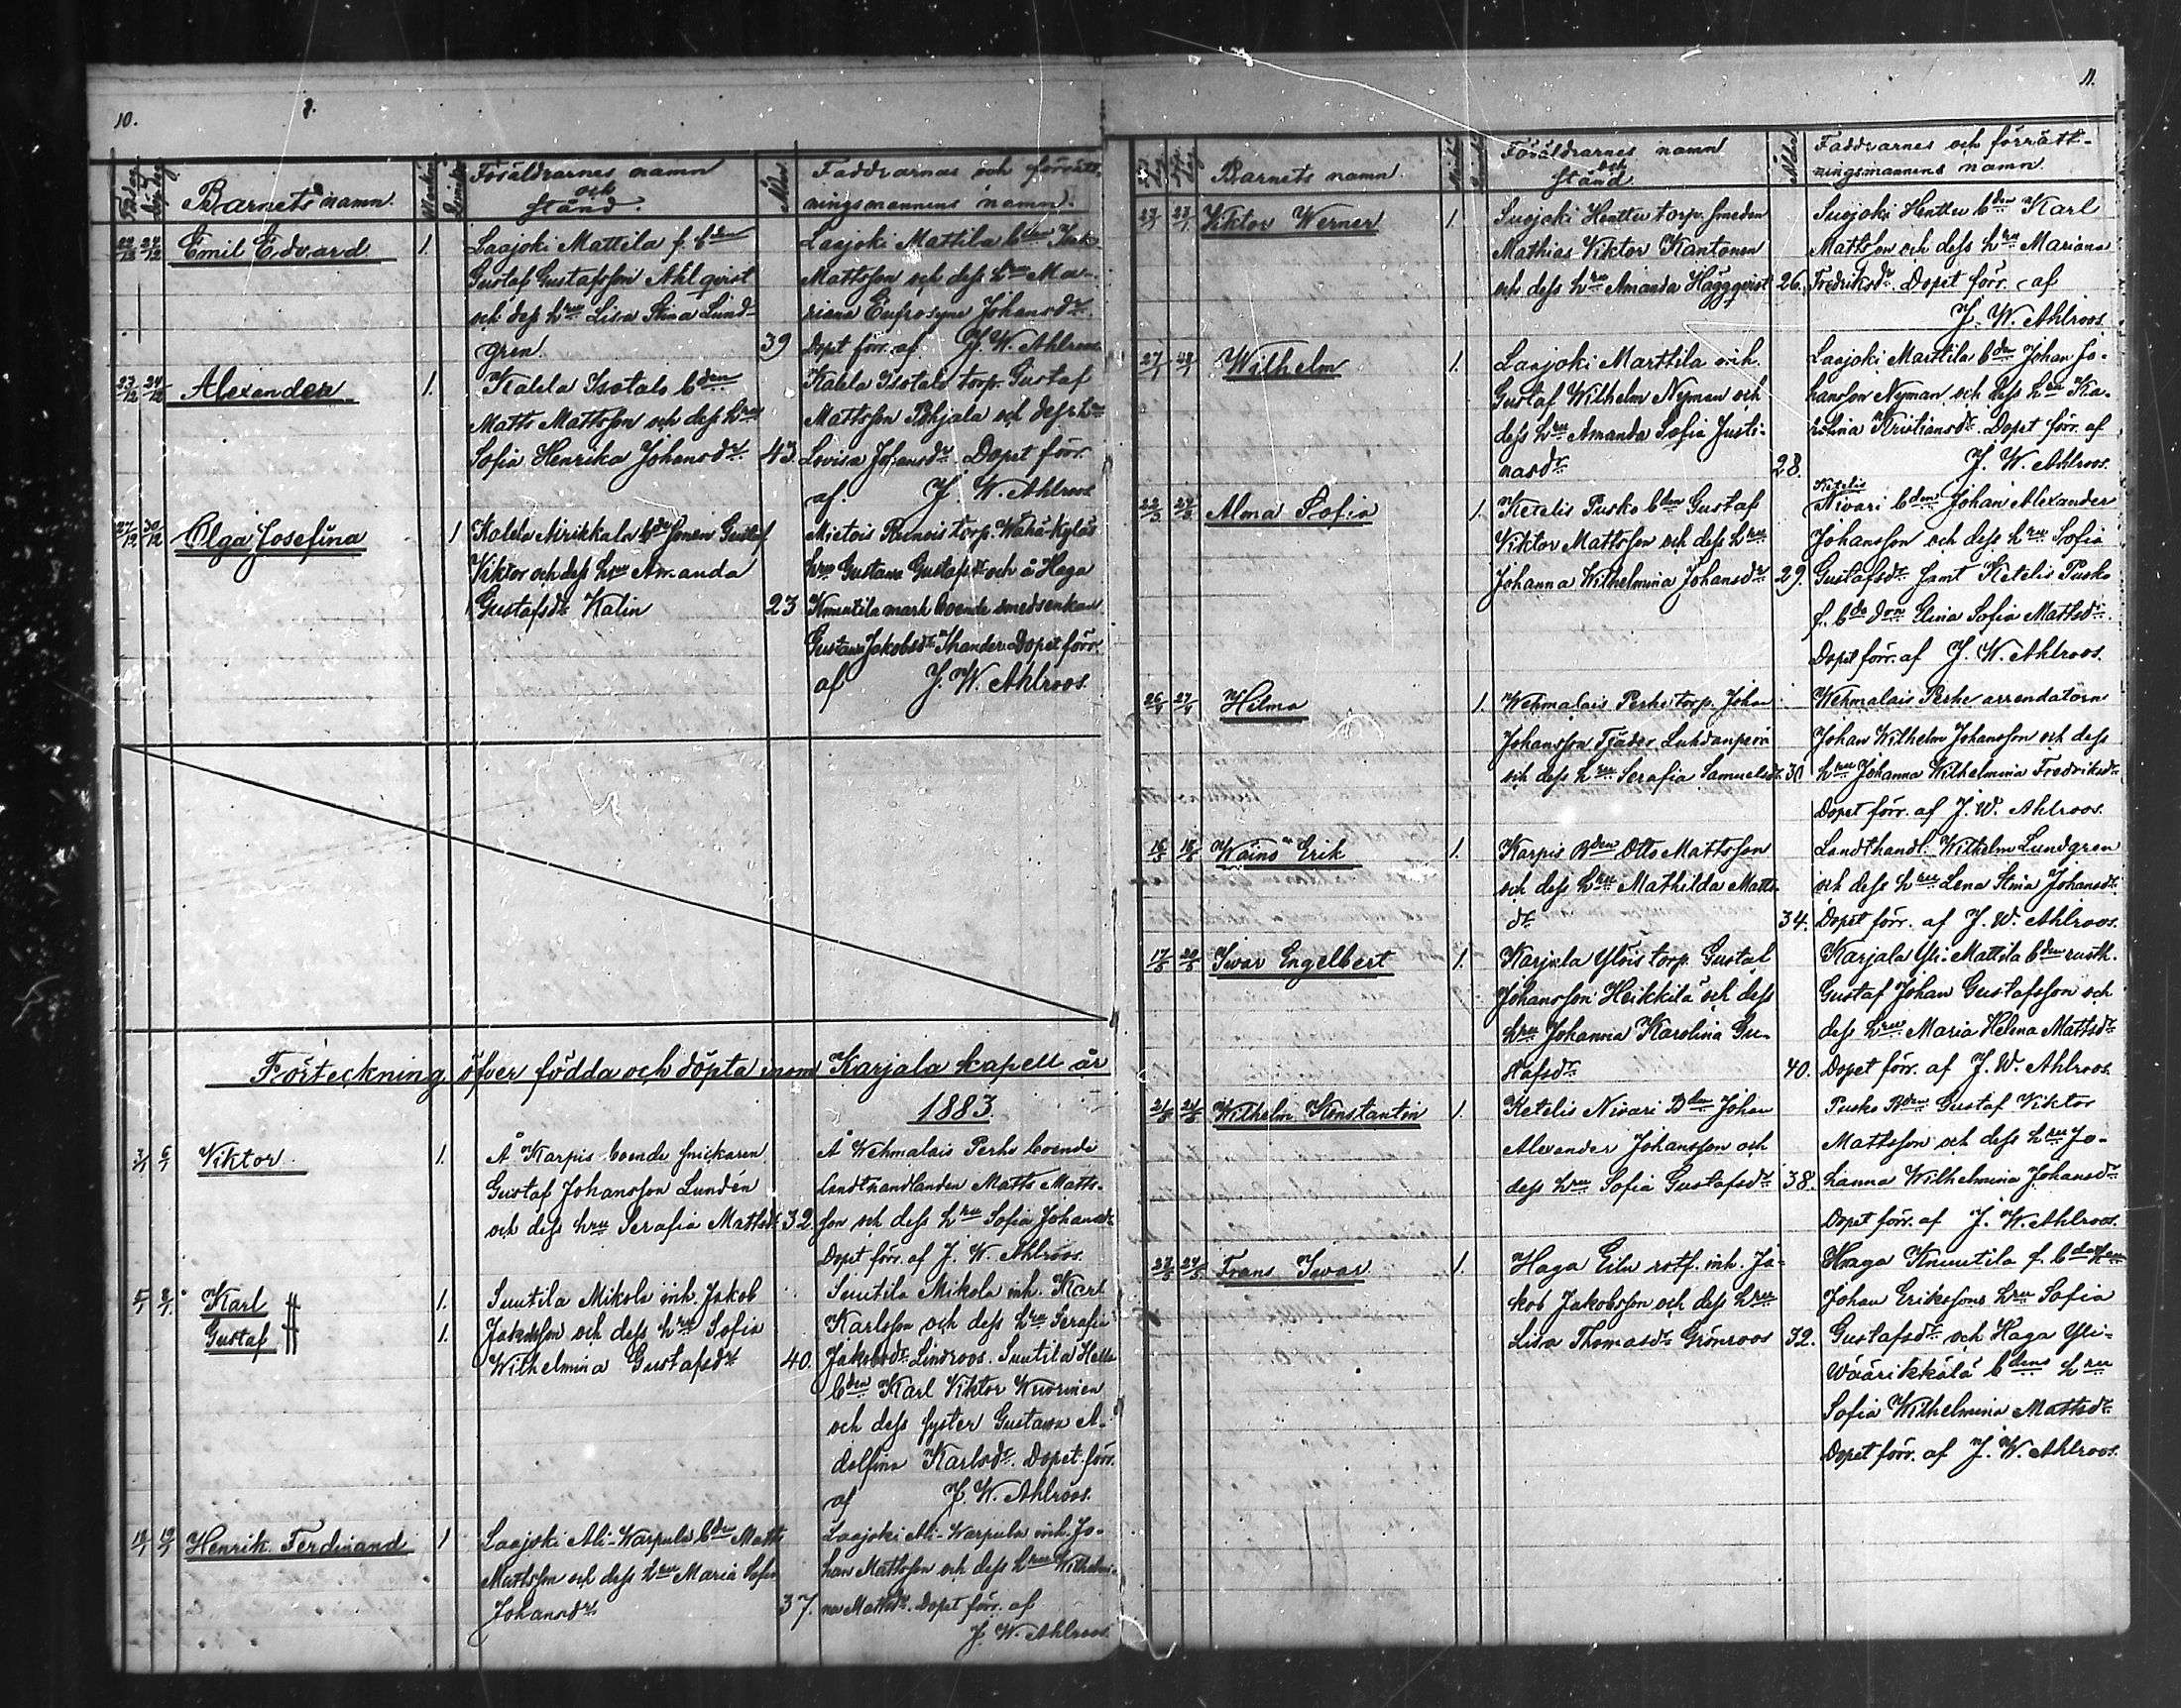 10.
Barnets namn.
Föräldrarnes namn
och
stånd.
Ålder
Faddrarnas och förrätt-
ningsmannens namn.
22/12 27/12 Emil Edvard 1.
Laajoki Mattila f. bden
Gustaf Gustafsson Ahlqvist
och dess hru Lisa Stina Lund-
gren. 39
Laajoki Mattila bden
Mattsson och dess hru Ma-
riana Eufrosyne Johansdr.
Dopet förr. af J. W. Ahlroos
23/12 24/12 Alexander 1.
Kalela Isotalo bden
Matts Mattsson och dess hru
Sofia Henrika Johansdr. 43.
Kalela Isotalo torp. Gustaf
Mattsson Pohjala och dess hru
Lovisa Johansdr. Dopet förr.
af J. W. Ahlroos
27/12 30/12 Olga Josefina 1
Kalela bde sonen Gustaf
Viktor och dess hru Amanda
Gustafsdr. Kalin 23
Mietois torp. Wähä-Kyläs
hru Gustava Gustafsdr. och å Haga
Knuutila mark boende smedsenkan
Gustava Jakobsdr. Thander. Dopet förr.
af J. W. Ahlroos.
Förteckning öfver födda och döpta inom Karjala kapell år
1883.
3/1 6/1 Viktor. 1.
Å Karpis boende snickaren
Gustaf Johansson Lundén
och dess hru Serafia Mattsdr. 32.
Å Wehmalais Perho boende
landthandlanden Matts Matts-
son och dess hru Sofia Johansdr.
Dopet förr. af J. W. Ahlroos.
5/1 8/1 Karl 1.
Gustaf 1.
Suutila Mikola inh. Jakob
Jakobsson och dess hru Sofia
Wilhelmina Gustafsdr. 40.
Suutila Mikola inh. Karl
Karlsson och dess hru Serafia
Jakobsdr. Lindroos. Suutila
bden Karl Viktor Wuorinen
och dess syster Gustava A-
dolfina Karlsdr. Dopet förr.
af J. W. Ahlroos.
Henrik Ferdinand 1
Laajoki Ali-Warpula bden Matts
Mattsson och dess hru Maria Sofia
Johansdr. 37.
Laajoki Ali-Warpula inh. Jo-
han Mattsson och dess hru Wilhelmi-
na Mattsdr. Dopet förr. af
J. W. Ahlroos.
11.
Barnets namn.
Föräldrarnes namn
och
stånd.
Ålder
Faddrarnes och förrätt-
ningsmannens namn.
Viktor Werner 1.
Suojoki Henttu torp. smeden
Mathias Viktor Kantonen
och dess hru Amanda Häggqvist 26.
Suojoki Henttu bden Karl
Mattsson och dess hru Mariana
Fredriksdr. Dopet förr. af
J. W. Ahlroos.
27/1 28/1 Wilhelm 1.
Laajoki Marttila inh.
Gustaf Wilhelm Nyman och
dess hru Amanda Sofia Justi-
nasdr. 28.
Laajoki Marttila bden Johan Jo-
hansson Nyman och dess hru Ka-
rolina Kristiansdr. Dopet förr. af
J. W. Ahlroos.
22/3 24/3 Alma Sofia 1.
Ketelis Pusko bden Gustaf
Viktor Mattsson och dess hru
Johanna Wilhelmina Johansdr. 29.
Ketelis
Nivari bden Johan Alexander
Johansson och dess hru Sofia
Gustafsdr. samt Ketelis Pusko
f. bde dr Elina Sofia Mattsdr.
Dopet förr. af J. W. Ahlroos.
26/4 27/4 Hilma 1.
Wehmalais Perho torp. Johan
Johansson Luhdanperä
och dess hru Serafia Samuelsdr. 30
Wehmalais Perho arrendatorn
Johan Wilhelm Johansson och dess
hru Johanna Wilhelmina Fredriksdr.
Dopet förr. af J. W. Ahlroos.
16/5 18/5 Wäinö Erik 1.
Karpis Bden Otto Mattsson
och dess hru Mathilda Matts-
dr. 34.
Landthandl. Wilhelm Lundgren
och dess hru Lena Stina Johansdr.
Dopet förr. af J. W. Ahlroos.
17/5 20/5 Iwar Engelbert 1.
Karjala Ylöis torp. Gustaf
Johansson Heikkilä och dess
hru Johanna Karolina Gu-
stafsdr. 40.
Karjala Yli-Mattila bden rusth.
Gustaf Johan Gustafsson och
dess hru Maria Helena Mattsdr.
Dopet förr. af J. W. Ahlroos.
21/5 24/5 Wilhelm Konstantin 1.
Ketelis Nivari Bden Johan
Alexander Johansson och
dess hru Sofia Gustafsdr. 38.
Pusko Bden Gustaf Viktor
Mattsson och dess hru Jo-
hanna Wilhelmina Johansdr.
Dopet förr. af J. W. Ahlroos.
22/5 24/5 Frans Iwar 1.
Haga Eilu rotf. inh. Ja-
kob Jakobsson och dess hru
Lisa Thomasdr. Grönroos 32.
Haga Knuutila f. bden
Johan Erikssons hru Sofia
Gustafsdr. och Haga Yli-
Wäärikkälä bdens hru
Sofia Wilhelmina Mattsdr.
Dopet förr. af J. W. Ahlroos.